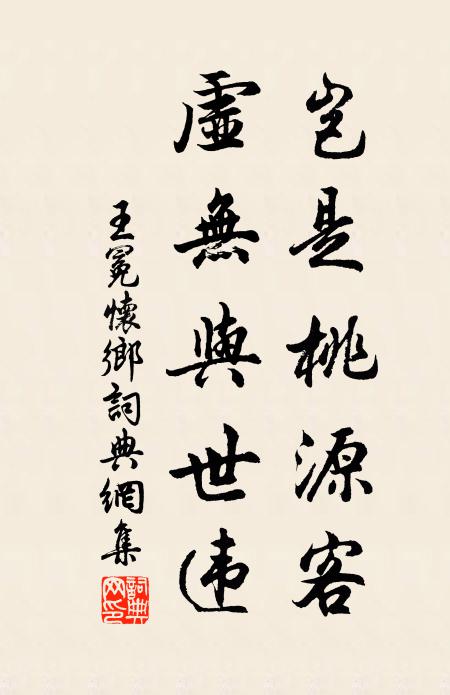 岂是桃源客
虛無與世违
王冕懷鄉詞典網集
詞典網印